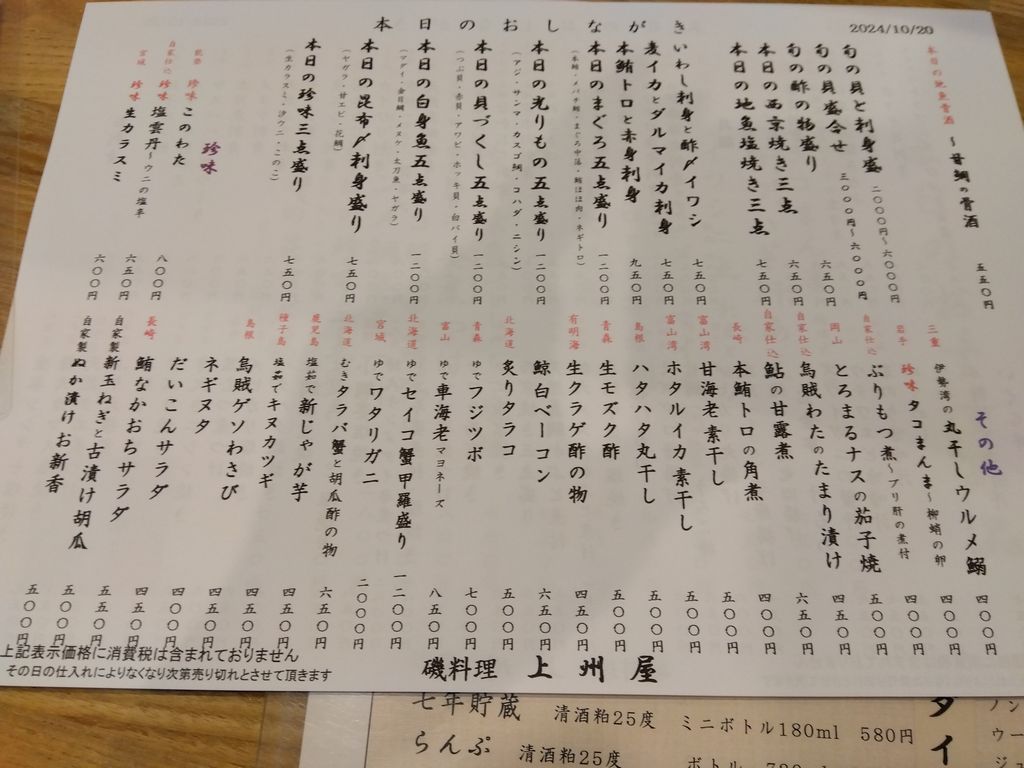 本日のおしながき
2024/10/20
本日の地魚骨酒 ～甘鯛の骨酒 五五〇円
旬の貝と刺身盛 二〇〇〇円～六〇〇〇円
旬の貝盛合せ 三〇〇〇円～六〇〇〇円
旬の酢の物盛り 六五〇円
本日の西京焼き三点 六五〇円
本日の地魚塩焼き三点 七五〇円
いわし刺身と酢〆イワシ 七五〇円
麦イカとダルマイカ刺身 七五〇円
本鮪トロと赤身刺身 九五〇円
本日のまぐろ五点盛り 一二〇〇円
（本鮪・メバチ鮪・まぐろ中落・鮪ほほ肉・ネギトロ）
本日の光りもの五点盛り 一二〇〇円
（アジ・サンマ・カスゴ鯛・コハダ・ニシン）
本日の貝づくし五点盛り 一二〇〇円
（つぶ貝・赤貝・アワビ・ホッキ貝・白バイ貝）
本日の白身魚五点盛り 一二〇〇円
（マダイ・金目鯛・メヌケ・太刀魚・ヤガラ）
本日の昆布〆刺身盛り 七五〇円
（ヤガラ・甘エビ・花鯛）
本日の珍味三点盛り 七五〇円
（生カラスミ・汐ウニ・このこ）
珍味
能登 珍味 このわた 八〇〇円
自家仕込 珍味 塩雲丹～ウニの塩辛 六五〇円
宮城 珍味 生カラスミ 六〇〇円
その他
三重 伊勢湾の丸干しウルメ鰯 四〇〇円
岩手 珍味 タコまんま～柳蛸の卵 四〇〇円
自家仕込 ぶりもつ煮～ブリ肝の煮付 四〇〇円
岡山 とろまるナスの茄子焼 五〇〇円
自家仕込 烏賊わたのたまり漬け 四五〇円
自家仕込 鮎の甘露煮 六五〇円
長崎 本鮪トロの角煮 四〇〇円
富山湾 甘海老素干し 五〇〇円
富山湾 ホタルイカ素干し 五〇〇円
島根 ハタハタ丸干し 五〇〇円
青森 生モズク酢 五〇〇円
有明海 生クラゲ酢の物 四五〇円
鯨白ベーコン 六五〇円
北海道 炙りタラコ 五〇〇円
青森 ゆでフジツボ 七〇〇円
富山 ゆで車海老マヨネーズ 八五〇円
北海道 ゆでセイコ蟹甲羅盛り 一二〇〇円
宮城 ゆでワタリガニ 二〇〇〇円
北海道 むきタラバ蟹と胡瓜酢の物 六五〇円
鹿児島 塩茹で新じゃが芋 四五〇円
種子島 塩茹でキヌカツギ 四五〇円
島根 烏賊ゲソわさび 四五〇円
ネギヌタ 四〇〇円
だいこんサラダ 四五〇円
長崎 鮪なかおちサラダ 五五〇円
自家製 新玉ねぎと古漬け胡瓜 五〇〇円
自家製 ぬか漬けお新香 五〇〇円
上記表示価格に消費税は含まれておりません
その日の仕入れによりなくなり次第売り切れとさせて頂きます
磯料理 上州屋
七年貯蔵 清酒粕25度 ミニボトル180ml 580円
らんぷ 清酒粕25度 ボトル 720ml
ダイ
ノン
ウー
ジュ